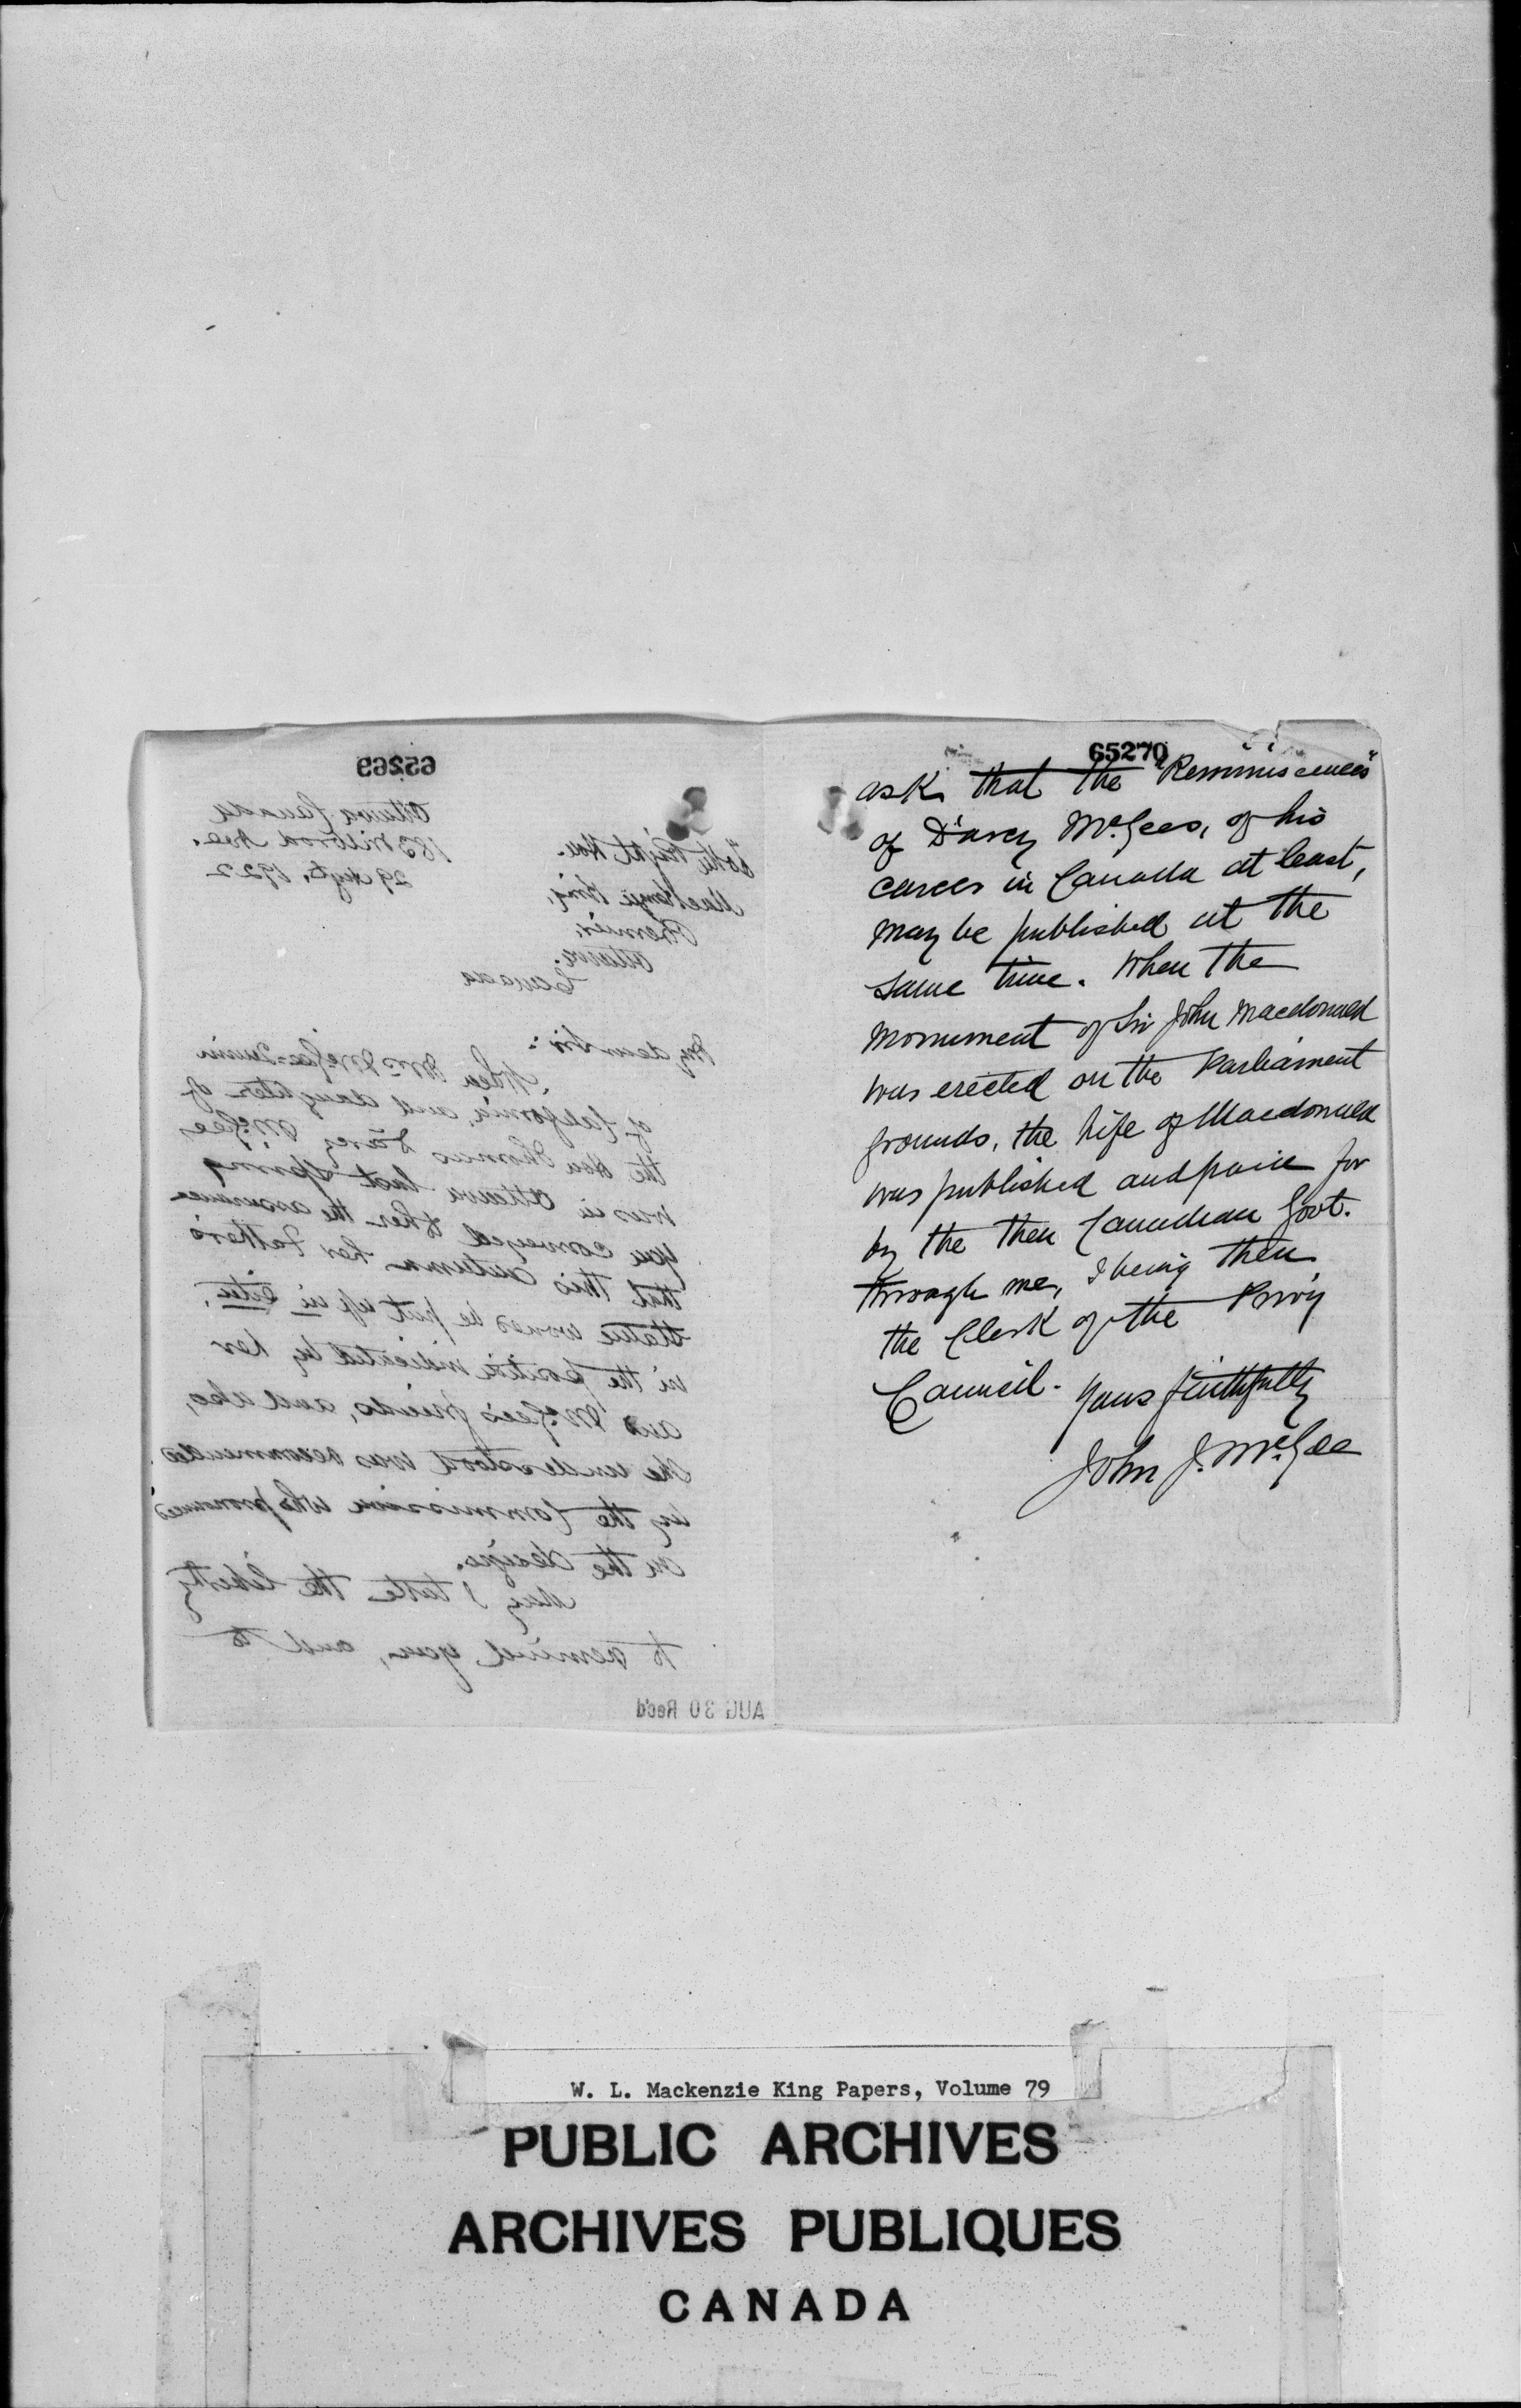 65269
Ottawa Canada
183 Wilbrod Ave.
29 Augt, 1922
To the Right Hon.
MacKenzie King,
Premier,
Ottawa.
Canada
My dear Sir:
When Mrs McGee-Quinn
of California, and daughter of
the Hon Thomas D'arcy McGee,
was in Ottawa last Spring
you conveyed to her the assurance
that this autumn her father's
statue would be put up in situ,
in the position indicated by her
and McGee's friends, and also,
she understood was recommended
by the Commission who pronounced
on the design.
May I take the liberty
to remind you, and to
AUG 30 Rec'd
65270
ask that the "Reminiscences"
of D'arcy McGees, of his
career in Canada at least,
may be published at the
same time. When the
monument of Sir John Macdonald
was erected on the Parliament
grounds, the life of Macdonald
was published and paid for
by the then Canadian Govt.
through me, I being then
the Clerk of the Privy
Council.
Yours faithfully
John J. McGee
W. L. Mackenzie King Papers, Volume 79
PUBLIC ARCHIVES
ARCHIVES PUBLIQUES
CANADA